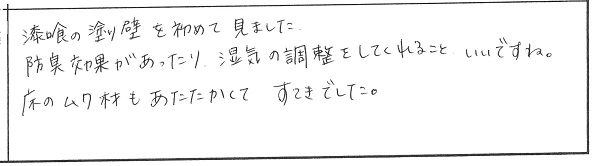 漆喰の塗り壁を初めて見ました。
防臭効果があったり、湿気の調整をしてくれること、いいですね。
床のムク材もあたたかくて すてきでした。